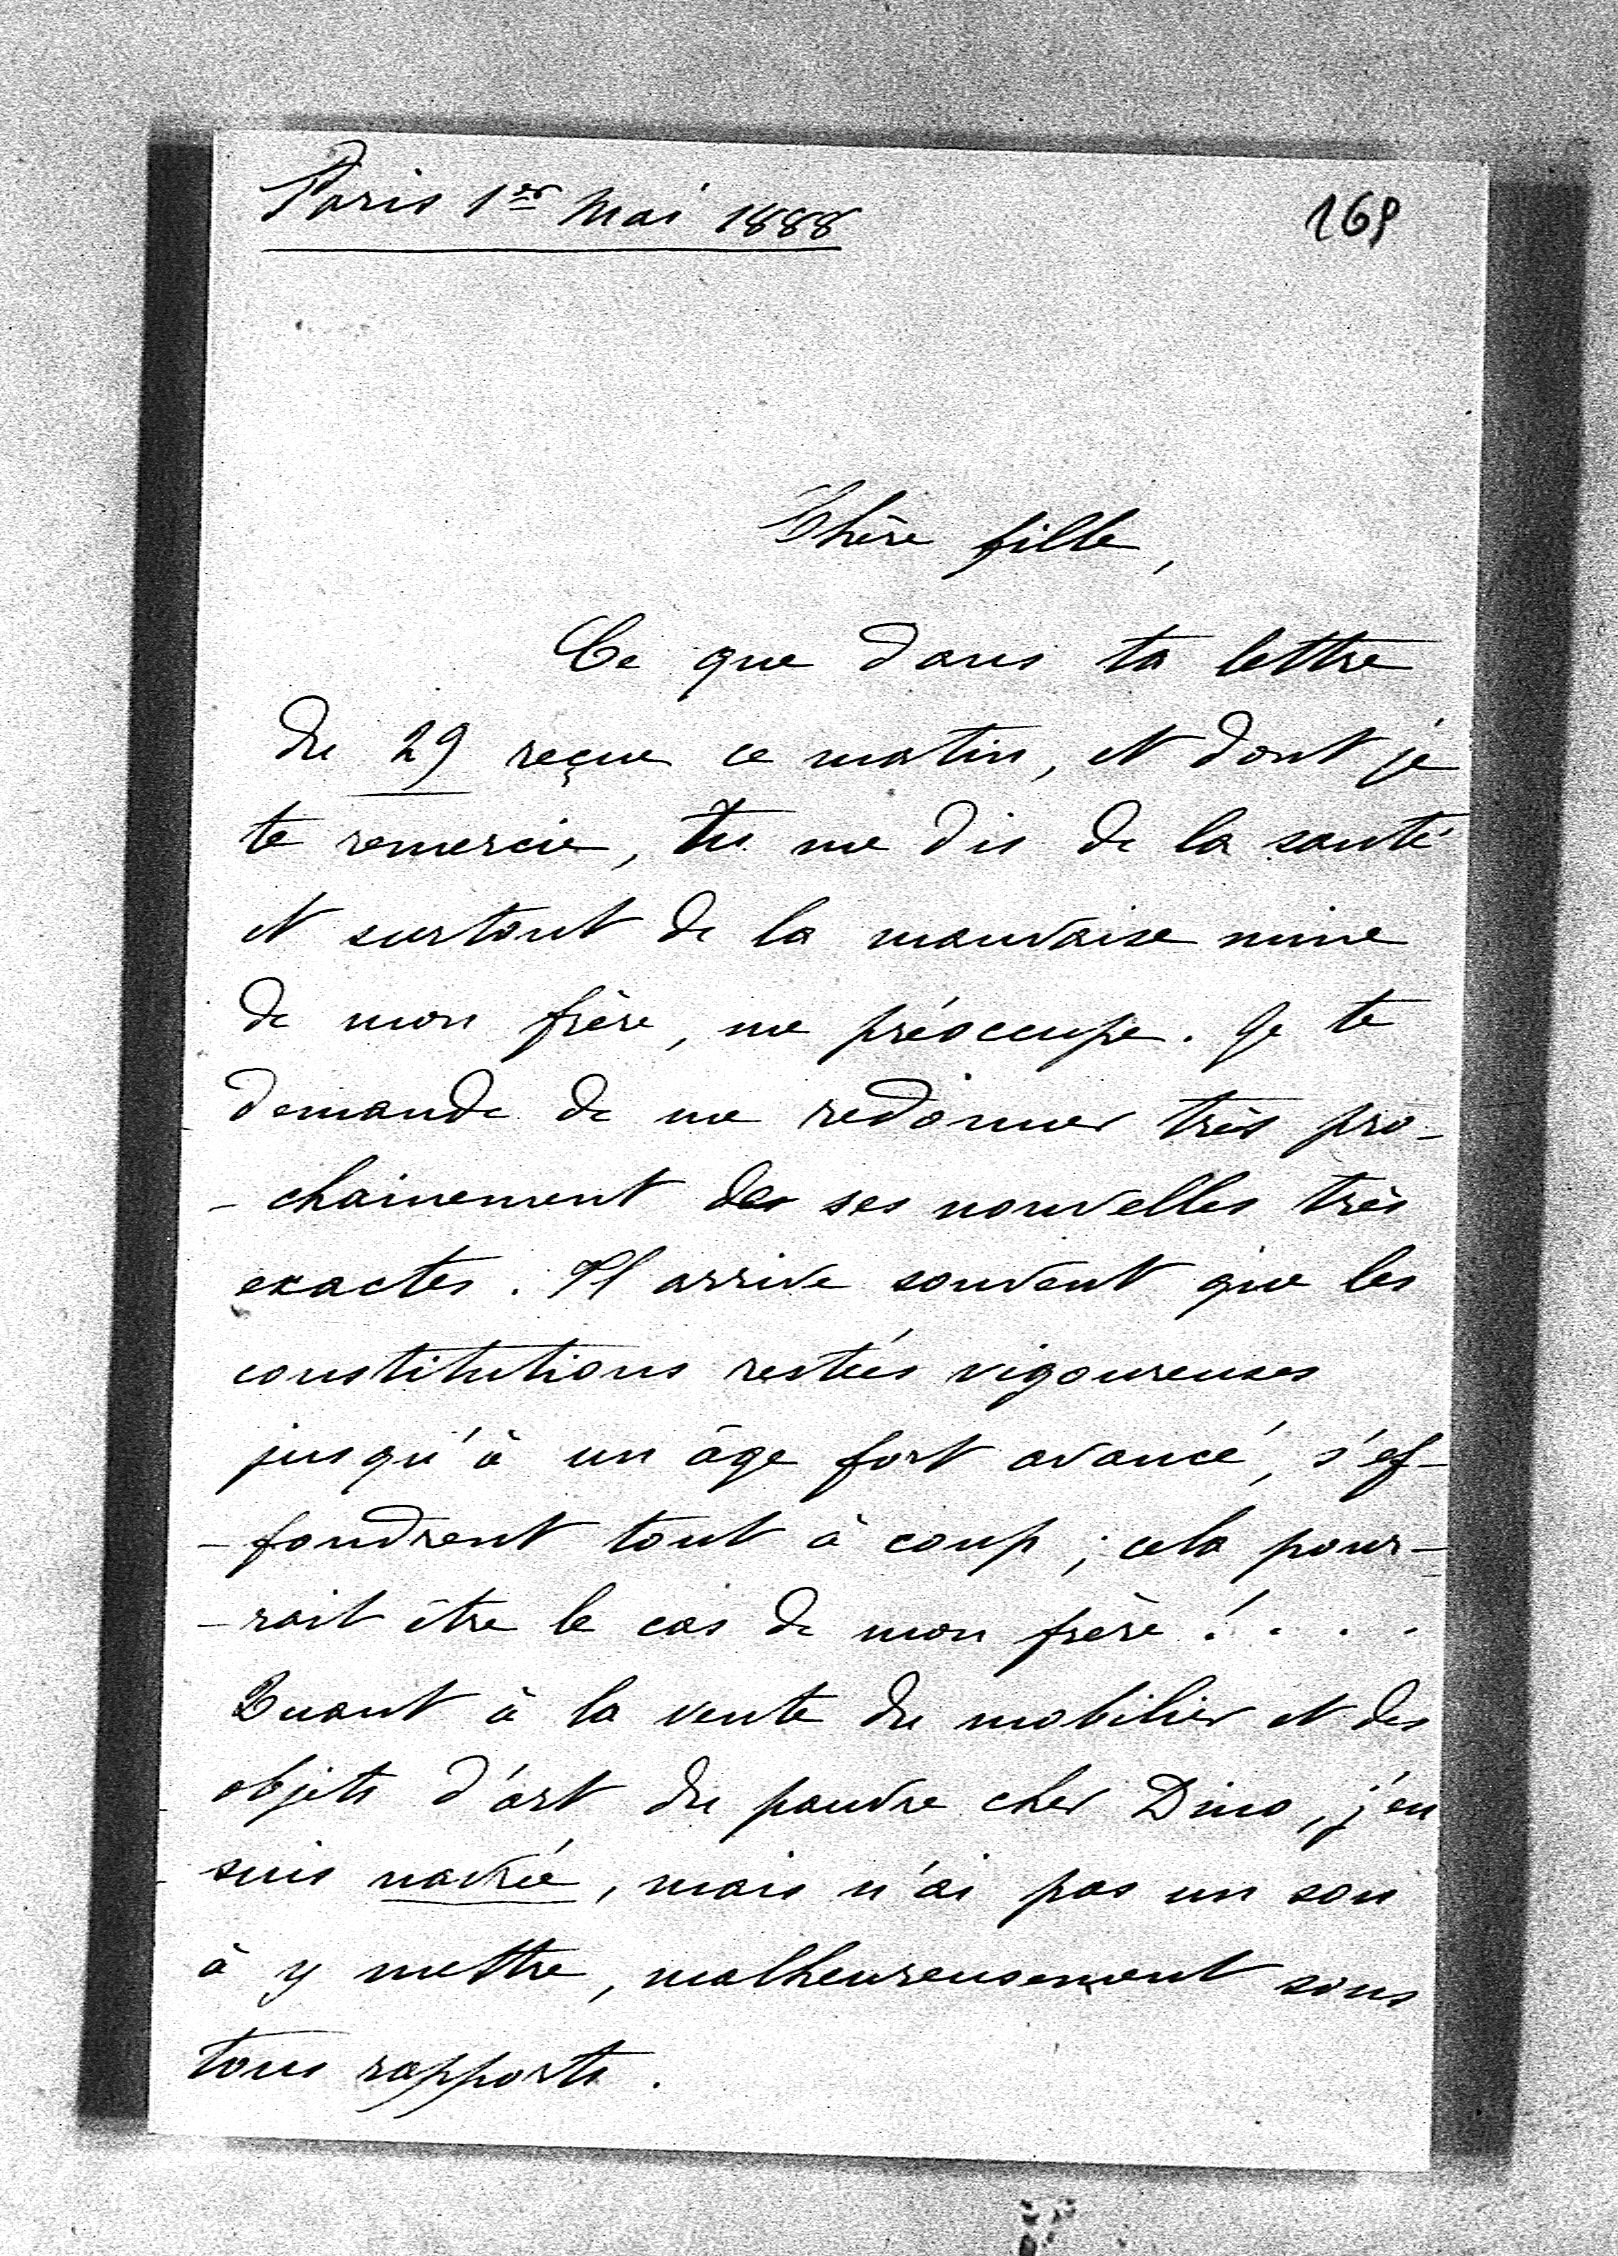 Paris 1er Mai 1888
169
Chère fille,
Ce que dans ta lettre
du 29 reçue ce matin, et dont je
te remercie, tu me dis de la santé
et surtout de la mauvaise mine
de mon frère, me préoccupe. Je te
demande de me redonner très pro-
-chainement des ses nouvelles très
exactes. Il arrive souvent que les
constitutions restées vigoureuses
jusqu'à un âge fort avancé, s'ef-
-fondrent tout à coup ; cela pour-
-rait être le cas de mon frère ! . . .
Quant à la vente du mobilier et des
objets d'art du pauvre cher Dino, j'en
suis navrée, mais n'ai pas un sou
à y mettre, malheureusement sous
tous rapports.